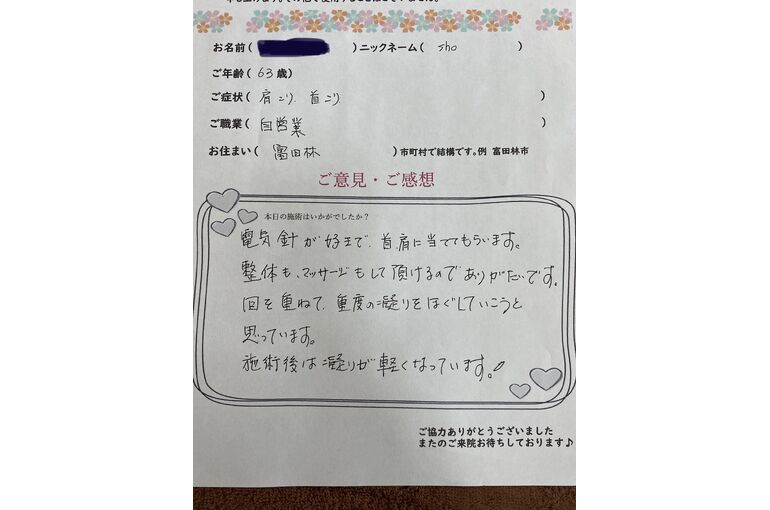 お名前( )ニックネーム( sho )
ご年齢( 63歳)
ご症状( 肩こり、首こり )
ご職業( 自営業 )
お住まい( 富田林 )市町村で結構です。例 富田林市
ご意見・ご感想
本日の施術はいかがでしたか?
電気針が好きで、首、肩に当ててもらいます。
整体も、マッサージもして頂けるのでありがたいです。
回を重ねて、重度の凝りをほぐしていこうと
思っています。
施術後は凝りが軽くなっています。
ご協力ありがとうございました
またのご来院お待ちしております♪